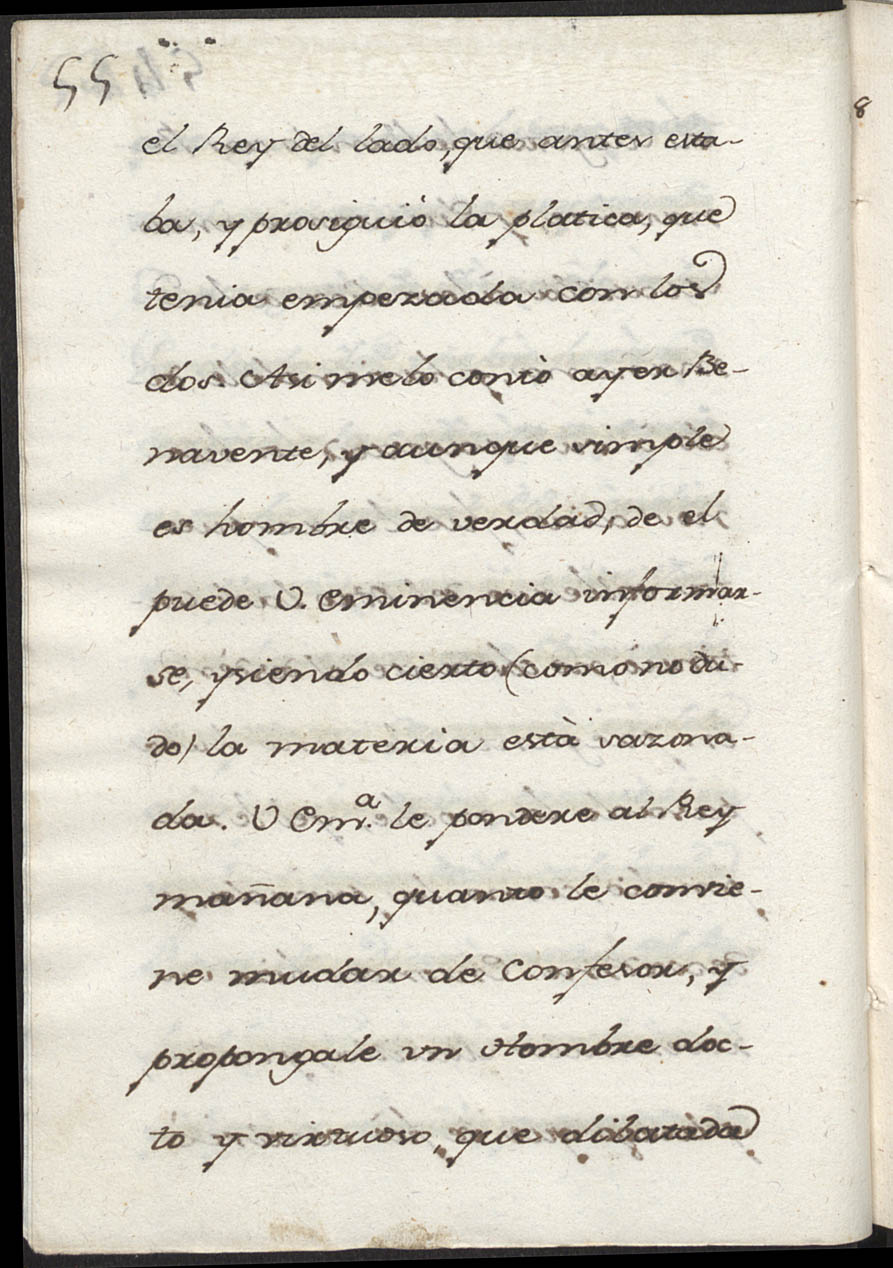 55
el Rey del lado, que antes esta-
ba, y prosiguiò la platica, que
tenia empezada con los
dos. Asi me lo contò ayer Be-
navente, y aunque simple
es hombre de verdad, de el
puede V. Eminencia informar-
se, y siendo cierto (como no du-
do) la materia està sazona-
da. V Em.ª le pondere al Rey
mañana, quanto le convie-
ne mudar de Confesor, y
propongale un Hombre doc-
to y virtuoso, que dilatada
8